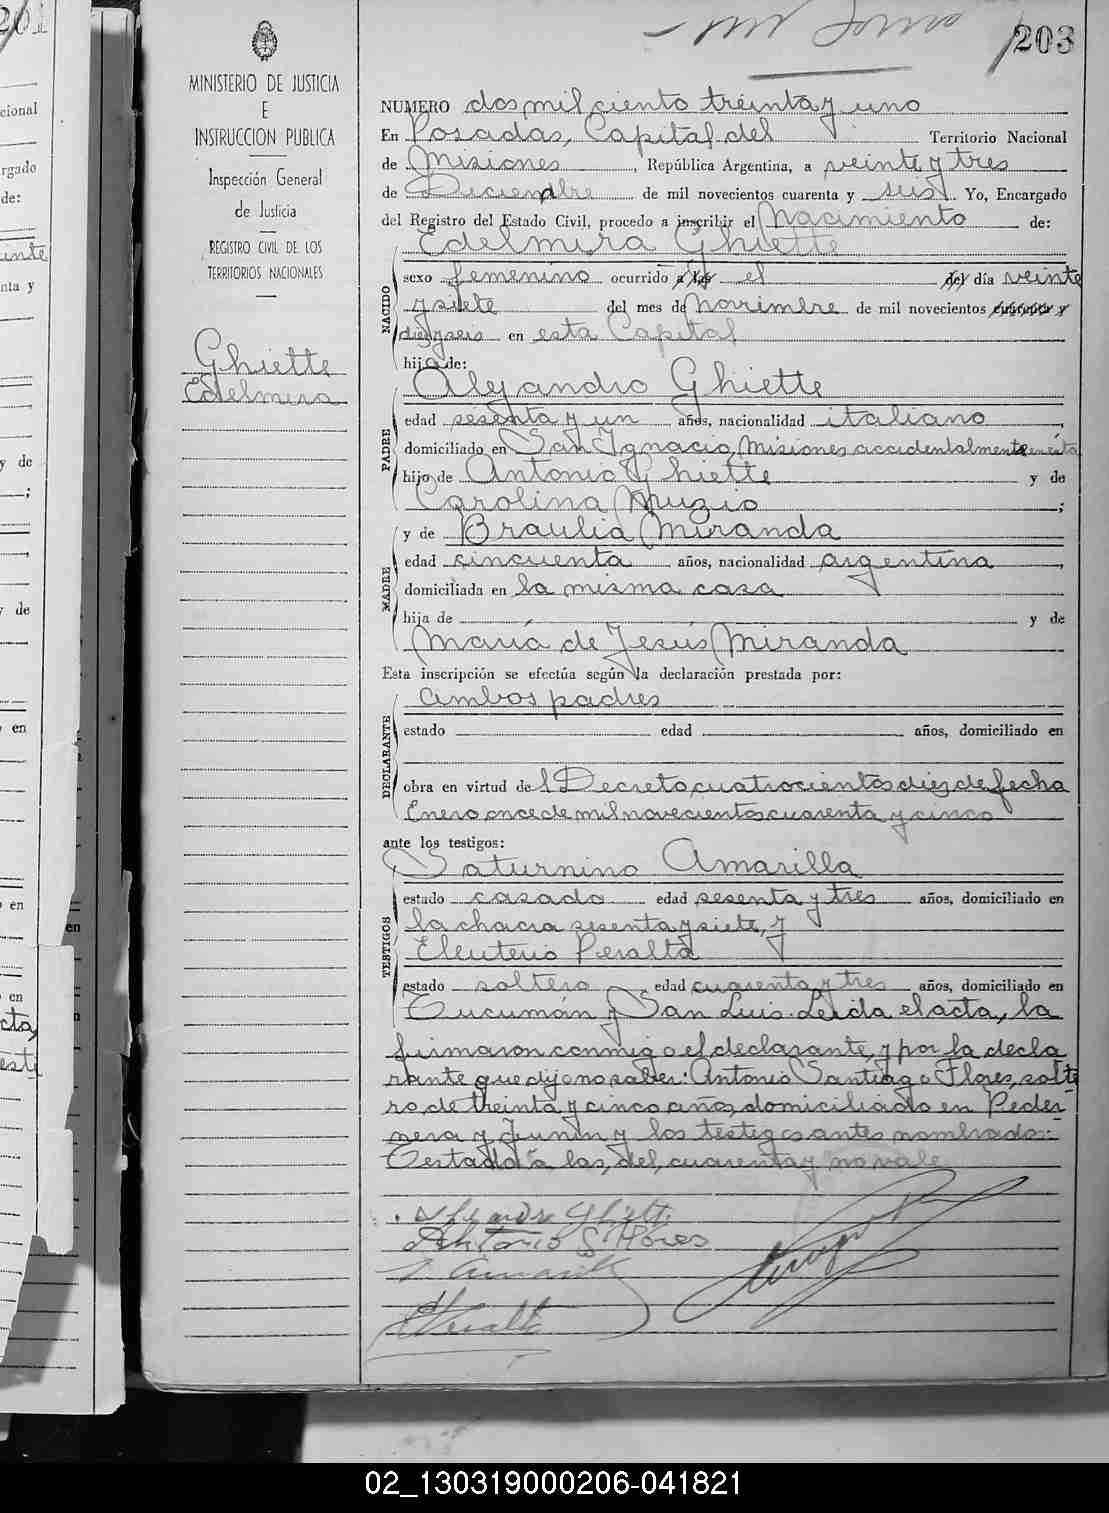 203
MINISTERIO DE JUSTICIA
E
INSTRUCCION PUBLICA
Inspección General
de Justicia
REGISTRO CIVIL DE LOS
TERRITORIOS NACIONALES
Ghiette
Edelmira
NUMERO dos mil ciento treinta y uno
En Posadas, Capital del Territorio Nacional
de Misiones, República Argentina, a veinte y tres
de Diciembre de mil novecientos cuarenta y seis Yo, Encargado
del Registro del Estado Civil, procedo a inscribir el Nacimiento de:
Edelmira Ghiette
NACIDO
sexo femenino ocurrido a las el del día veinte
y siete del mes de Noviembre de mil novecientos cuarenta y
diez y seis en esta Capital
hija de:
Alejandro Ghiette
PADRE
edad sesenta y un años, nacionalidad italiano,
domiciliado en San Ignacio, Misiones accidentalmente en esta
hijo de Antonio Ghiette y de
Carolina Muzio;
y de Braulia Miranda
MADRE
edad cincuenta años, nacionalidad argentina,
domiciliada en la misma casa
hija de y de
María de Jesús Miranda
Esta inscripción se efectúa según la declaración prestada por:
ambos padres
DECLARANTE
estado edad años, domiciliado en
obra en virtud del Decreto cuatrocientos diez de fecha
Enero once de mil novecientos cuarenta y cinco
ante los testigos:
Saturnino Amarilla
TESTIGOS
estado casado edad sesenta y tres años, domiciliado en
la chacra sesenta y siete, y
Eleuterio Peralta
estado soltero edad cuarenta y tres años, domiciliado en
Tucumán y San Luis. Leída el acta, la
firmaron conmigo el declarante, y por la decla
rante que dijo no saber: Antonio Santiago Flores, solte
ro de treinta y cinco años, domiciliado en Peder-
nera y Junín y los testigos antes nombrados:-
Testado a las, del, cuarenta y no vale
Alejandro Ghiette
Antonio S Flores
S. Amarilla
E Peralta
02_130319000206-041821